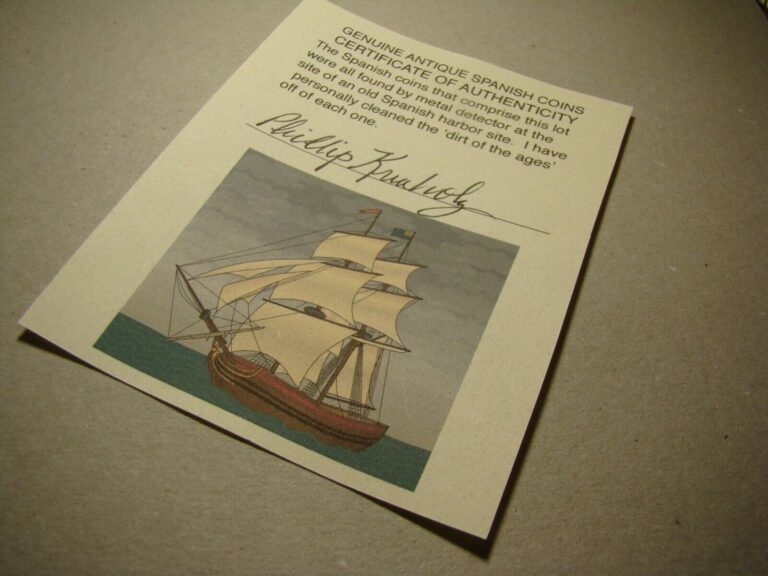 GENUINE ANTIQUE SPANISH COINS
CERTIFICATE OF AUTHENTICITY
The Spanish coins that comprise this lot
were all found by metal detector at the
site of an old Spanish harbor site. I have
personally cleaned the 'dirt of the ages'
off of each one.
Phillip